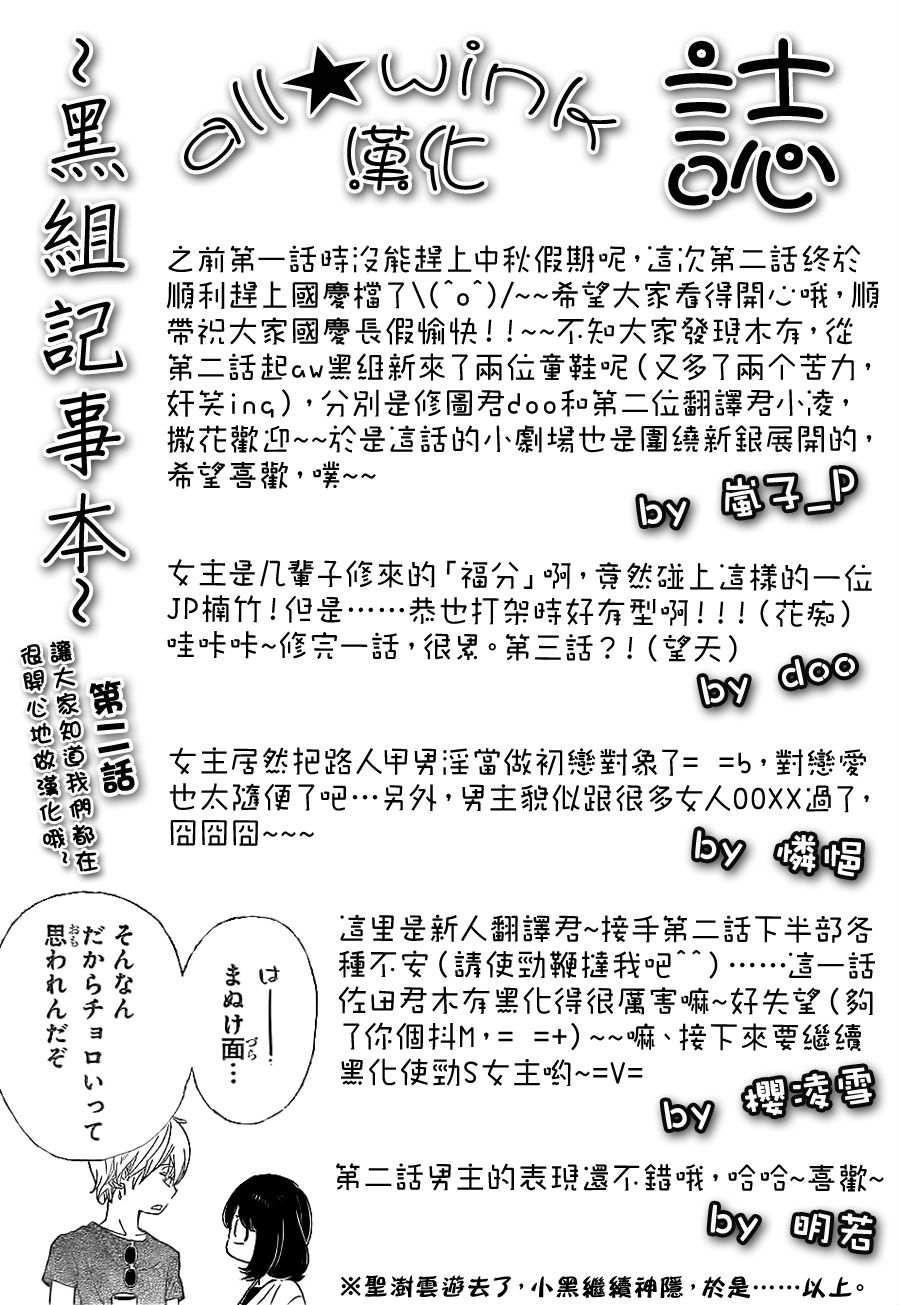 all★wink
漢化
誌
~黑組記事本~
第二話
讓大家知道我們都在
很開心地做漢化哦~
之前第一話時沒能趕上中秋假期呢,這次第二話終於
順利趕上國慶檔了\(^o^)/~~希望大家看得開心哦,順
帶祝大家國慶長假愉快!!~~不知大家發現木有,從
第二話起aw黑组新來了兩位童鞋呢(又多了兩个苦力,
奸笑ing),分別是修圖君doo和第二位翻譯君小凌,
撒花歡迎~~於是這話的小劇場也是圍繞新銀展開的,
希望喜歡,噗~~
by 嵐子_P
女主是几輩子修來的「福分」啊,竟然碰上這樣的一位
JP楠竹!但是……恭也打架時好有型啊!!!(花痴)
哇咔咔~修完一話,很累。第三話?!(望天)
by doo
女主居然把路人甲男淫當做初戀對象了= =b,對戀愛
也太隨便了吧…另外,男主貌似跟很多女人OOXX過了,
囧囧囧~~~
by 憐悒
這里是新人翻譯君~接手第二話下半部各
種不安(請使勁鞭撻我吧^^)……這一話
佐田君木有黑化得很厲害嘛~好失望(夠
了你個抖M,= =+)~~嘛、接下來要繼續
黑化使勁S女主喲~=V=
by 櫻凌雪
第二話男主的表現還不錯哦,哈哈~喜歡~
by 明若
※聖澍雲遊去了,小黑繼續神隱,於是……以上。
は———!
まぬけ面…
づら
そんなん
だからチョロいって
思われんだぞ
おも